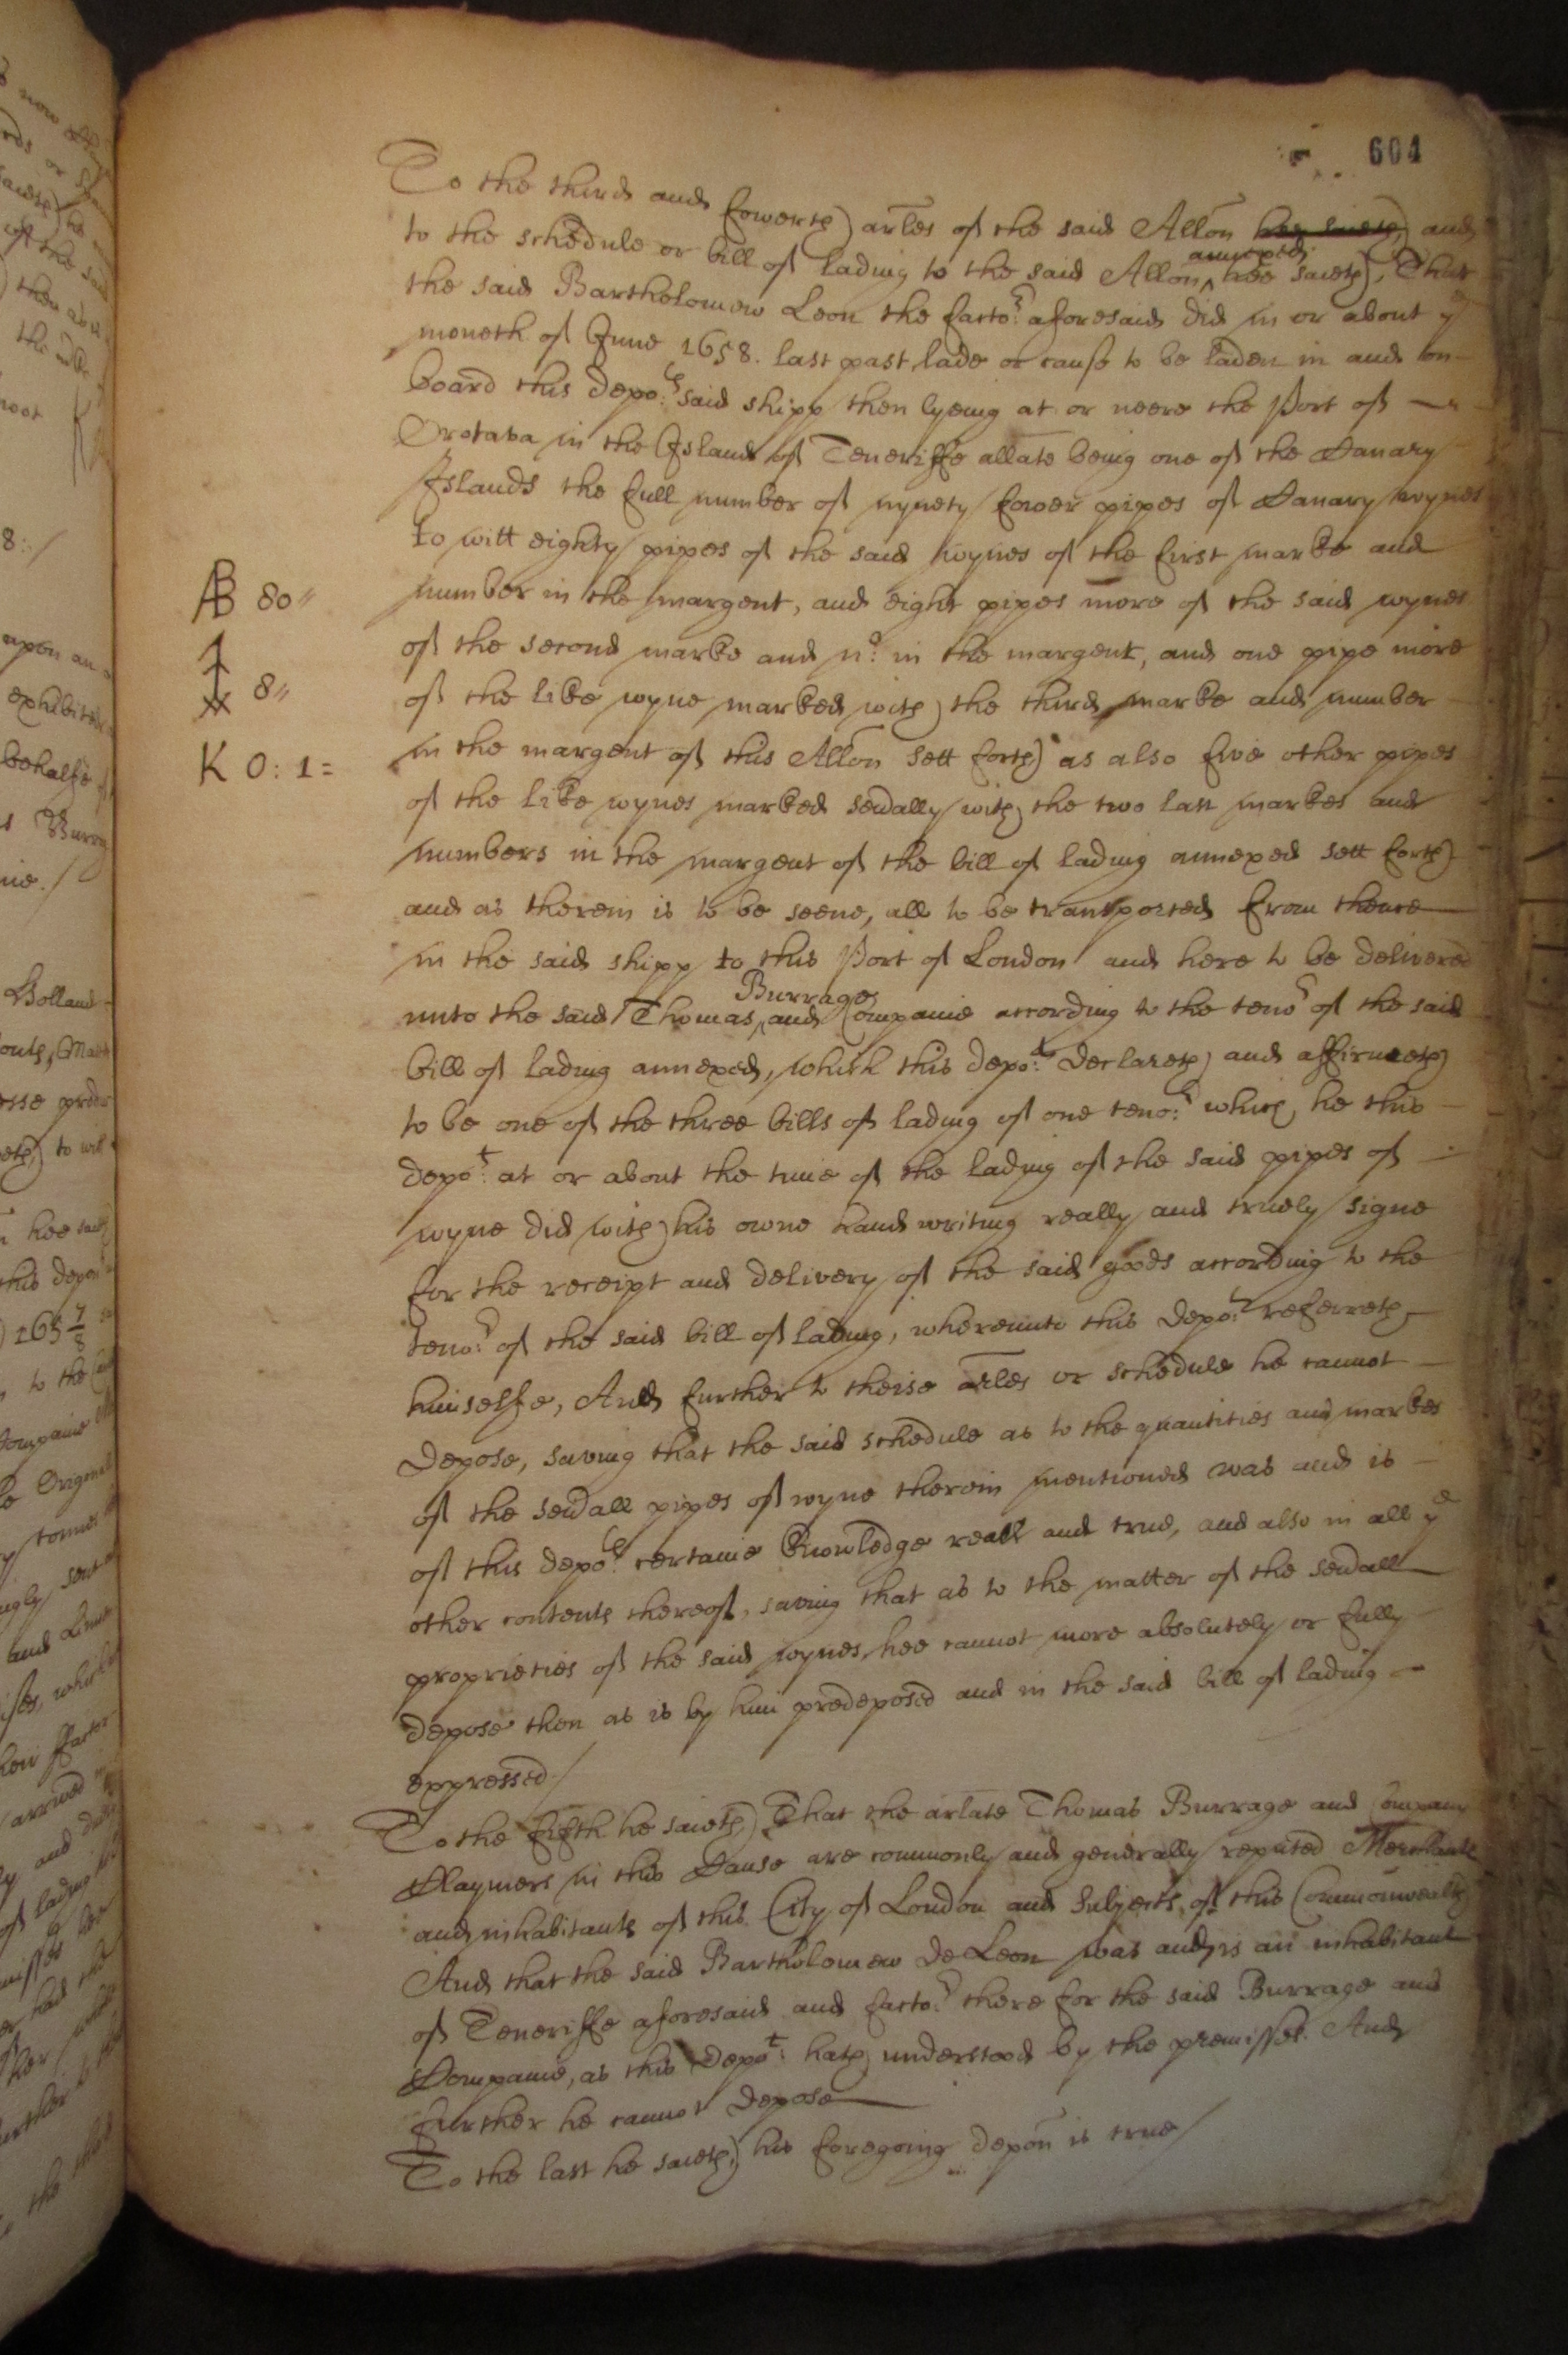 604
To the third and fowerth arles of the said Allon hee saieth and
to the schedule or bill of lading to the said Allon annexed hee saieth, That
the said Bartholomew Leon the facto:r aforesaid did in or about ye
moneth of June 1658. last past lade or cause to be laden in and on
board this depo:ts said shipp then lyeing at or neere the Port of
Orotava in the Island of Teneriffe allate being one of the Canary
Islands the full number of nynety fower pipes of Canary wynes
to witt eighty pipes of the said wynes of the first marke and
AB 80"
number in the margent, and eight pipes more of the said wynes
of the second marke and no: in the margent, and one pipe more
8"
of the like wyne marked with the third marke and number
K O: 1=
in the margent of this Allon sett forth as also five other pipes
of the like wynes marked sevally with the two last markes and
numbers in the margent of the bill of lading annexed sett forth
and as therein is to be seene, all to be transported from thence
in the said shipp to this Port of London and here to be delivered
unto the said Thomas Burrage and Companie according to the teno:r of the said
bill of lading annexed, which this depo:t declareth and affirmeth
to be one of the three bills of lading of one teno:r which he this
depo:t at or about the time of the lading of the said pipes of
wyne did with his owne hand writing really and truely signe
for the receipt and delivery of the said goods according to the
teno:r of the said bill of lading, whereunto this depo:t referreth
himselfe, And further to theise arles or schedule he cannot
depose, saving that the said schedule as to the quantities and markes
of the sevall pipes of wyne therein mentioned was and is
of this depo:ts certaine knowledge reall and true, and also in all ye
other contents thereof, saving that as to the matter of the sevall
proprieties of the said wynes, hee cannot more absolutely or fully
depose then as is by him predeposed and in the said bill of lading
expressed/
To the fifth he saieth, That the arlate Thomas Burrage and Company
Claymers in this Cause are commonly and generally reputed Merchants
and inhabitants of this City of London and Subjects of this Commonwealth
And that the said Bartholomew De Leon was and is an inhabitant
of Teneriffe aforesaid and facto:r there for the said Burrage and
Companie, as this depo:t hath understood by the premisses. And
further he cannot depose
To the last he saieth, his foregoing depon is true/